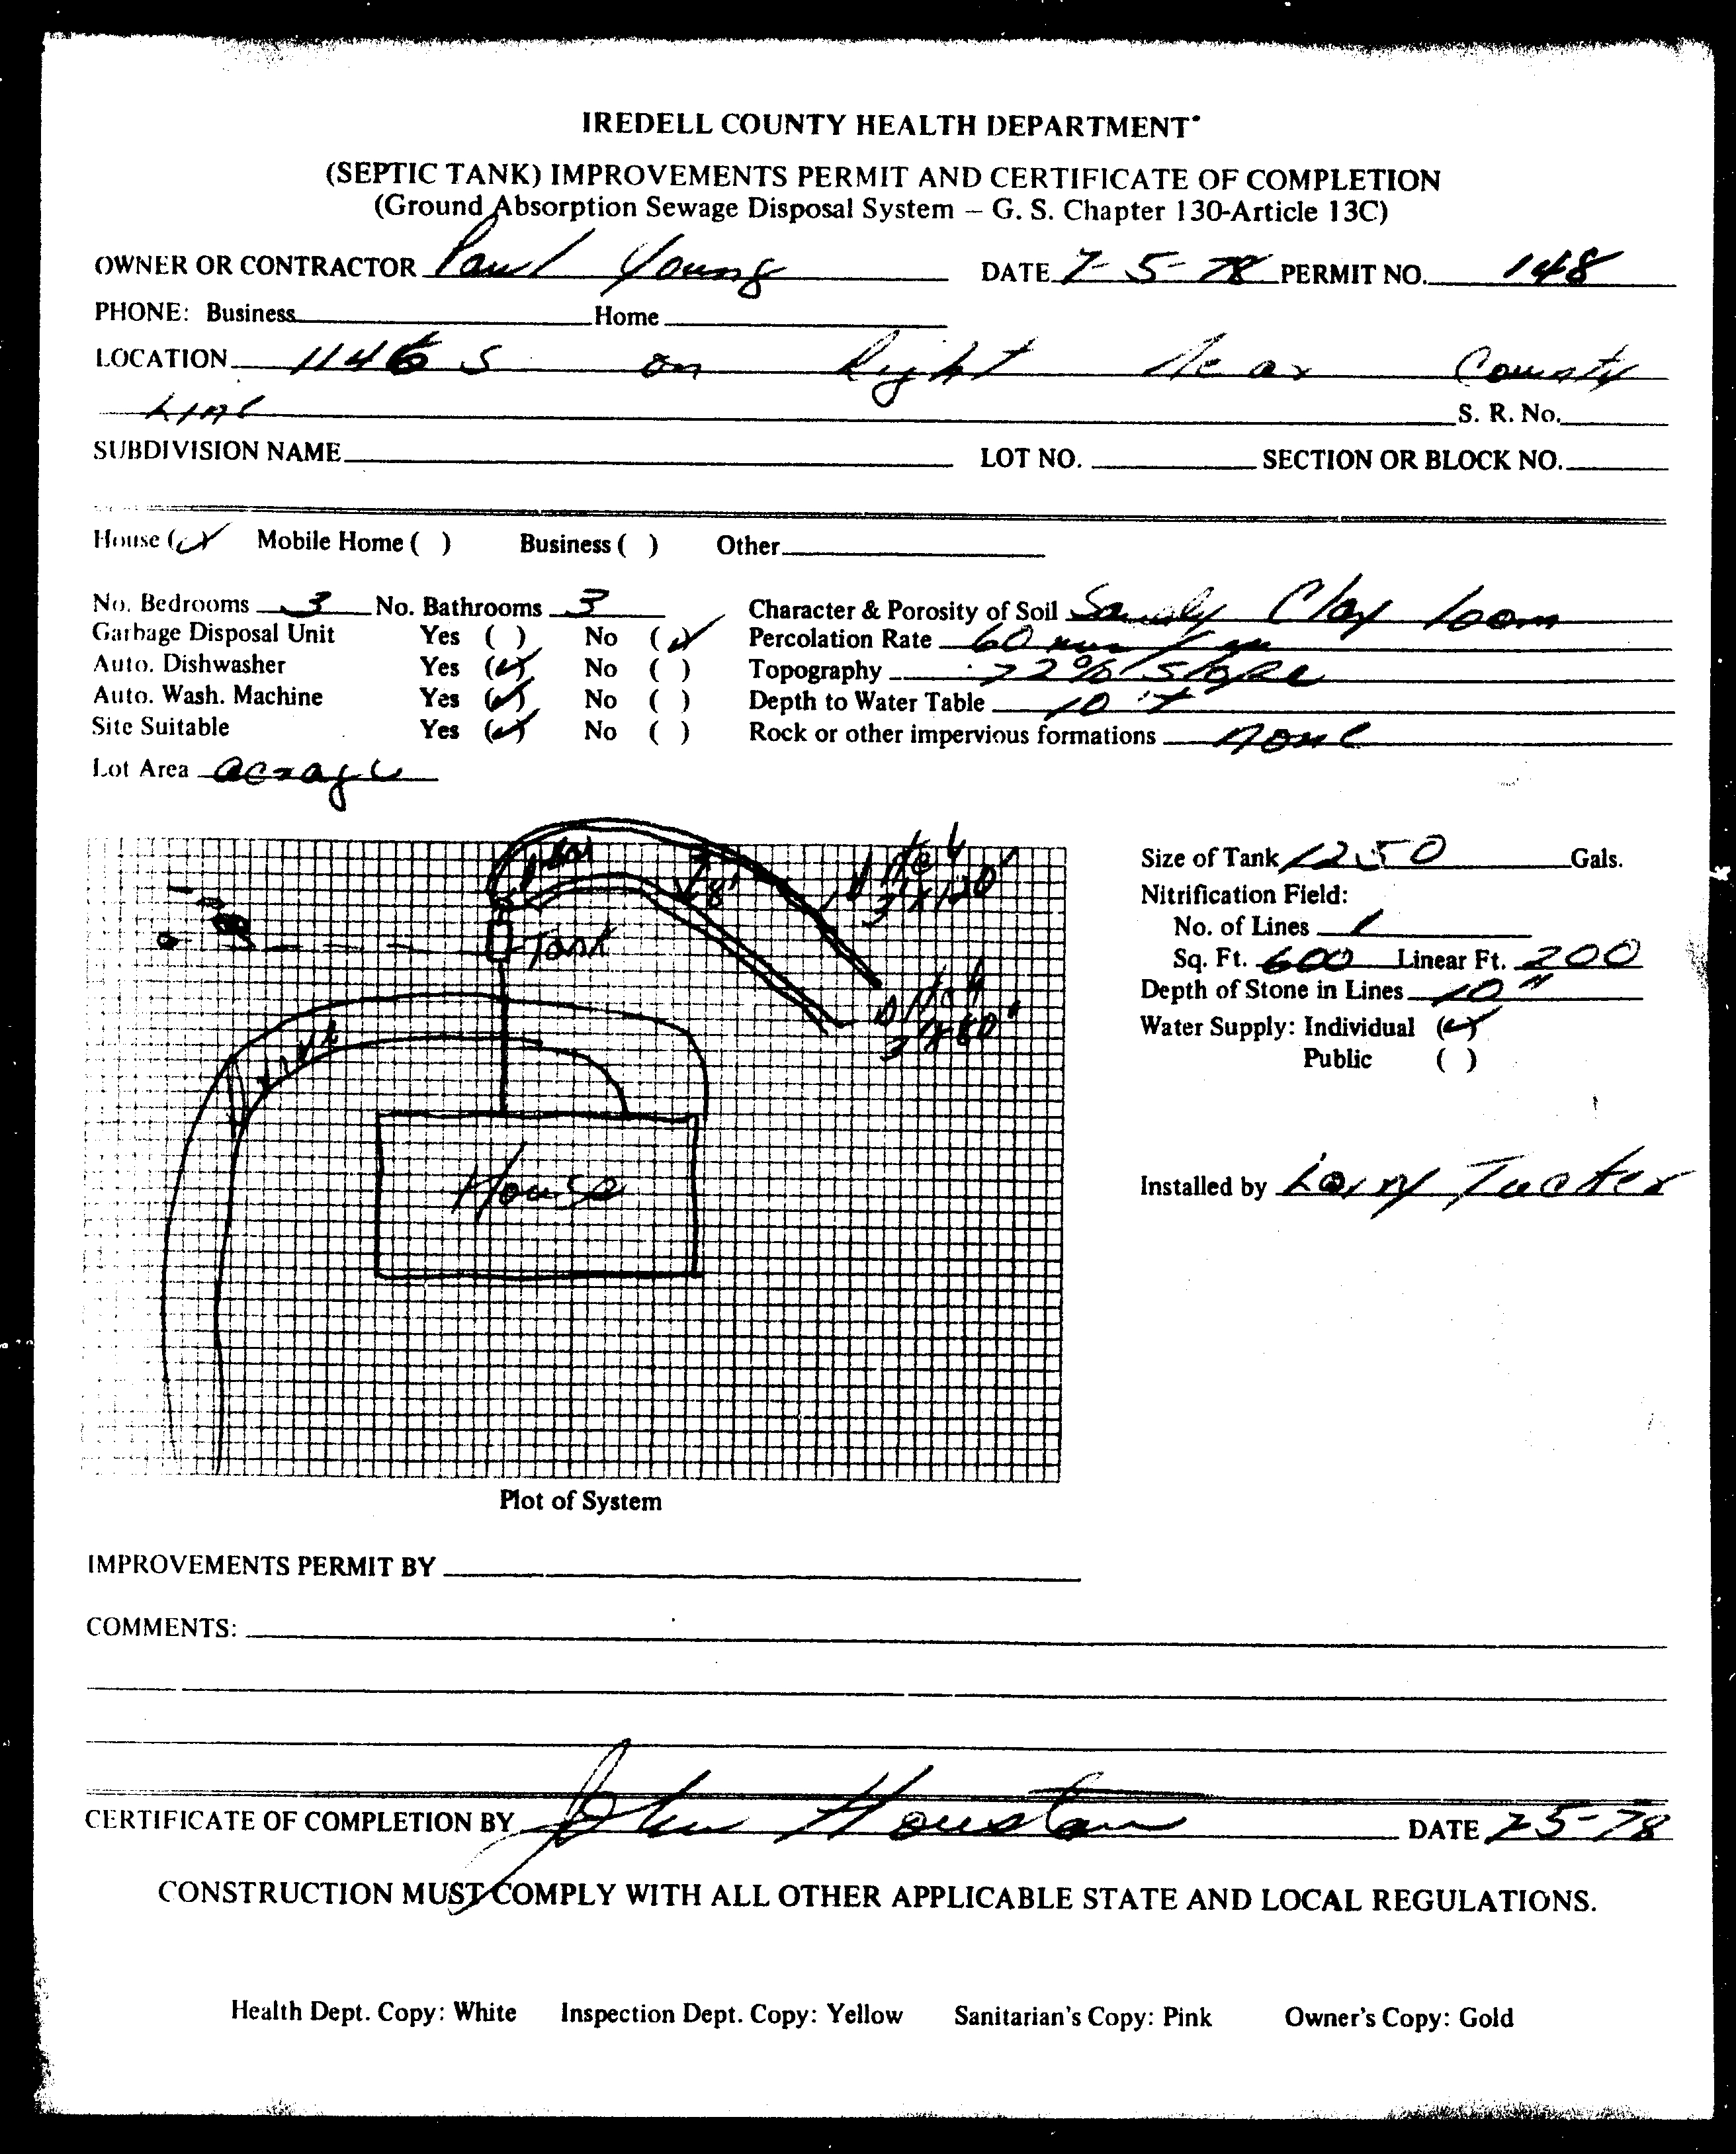 IREDELL COUNTY HEALTH DEPARTMENT
(SEPTIC TANK) IMPROVEMENTS PERMIT AND CERTIFICATE OF COMPLETION
(Ground Absorption Sewage Disposal System – G. S. Chapter 130-Article 13C)
OWNER OR CONTRACTOR Paul Young DATE 7-5-78 PERMIT NO. 148
PHONE: Business Home
LOCATION 1146 S on Right Near County
Line S. R. No.
SUBDIVISION NAME LOT NO. SECTION OR BLOCK NO.
House (✓) Mobile Home ( ) Business ( ) Other
No. Bedrooms 3 No. Bathrooms 3 Character & Porosity of Soil Sandy Clay loom
Garbage Disposal Unit Yes ( ) No (✓) Percolation Rate 60
Auto. Dishwasher Yes (✓) No ( ) Topography >2% slope
Auto. Wash. Machine Yes (✓) No ( ) Depth to Water Table 10
Site Suitable Yes (✓) No ( ) Rock or other impervious formations none
Lot Area acrage
Size of Tank 1250 Gals.
Nitrification Field:
No. of Lines 1
Sq. Ft. 600 Linear Ft. 200
Depth of Stone in Lines 10"
Water Supply: Individual (✓)
Public ( )
Installed by Larry Tucker
8'
Ditch
3'x120'
Tank
Ditch
3'x80'
House
Plot of System
IMPROVEMENTS PERMIT BY
COMMENTS:
CERTIFICATE OF COMPLETION BY John Houston DATE 7-5-78
CONSTRUCTION MUST COMPLY WITH ALL OTHER APPLICABLE STATE AND LOCAL REGULATIONS.
Health Dept. Copy: White Inspection Dept. Copy: Yellow Sanitarian's Copy: Pink Owner's Copy: Gold